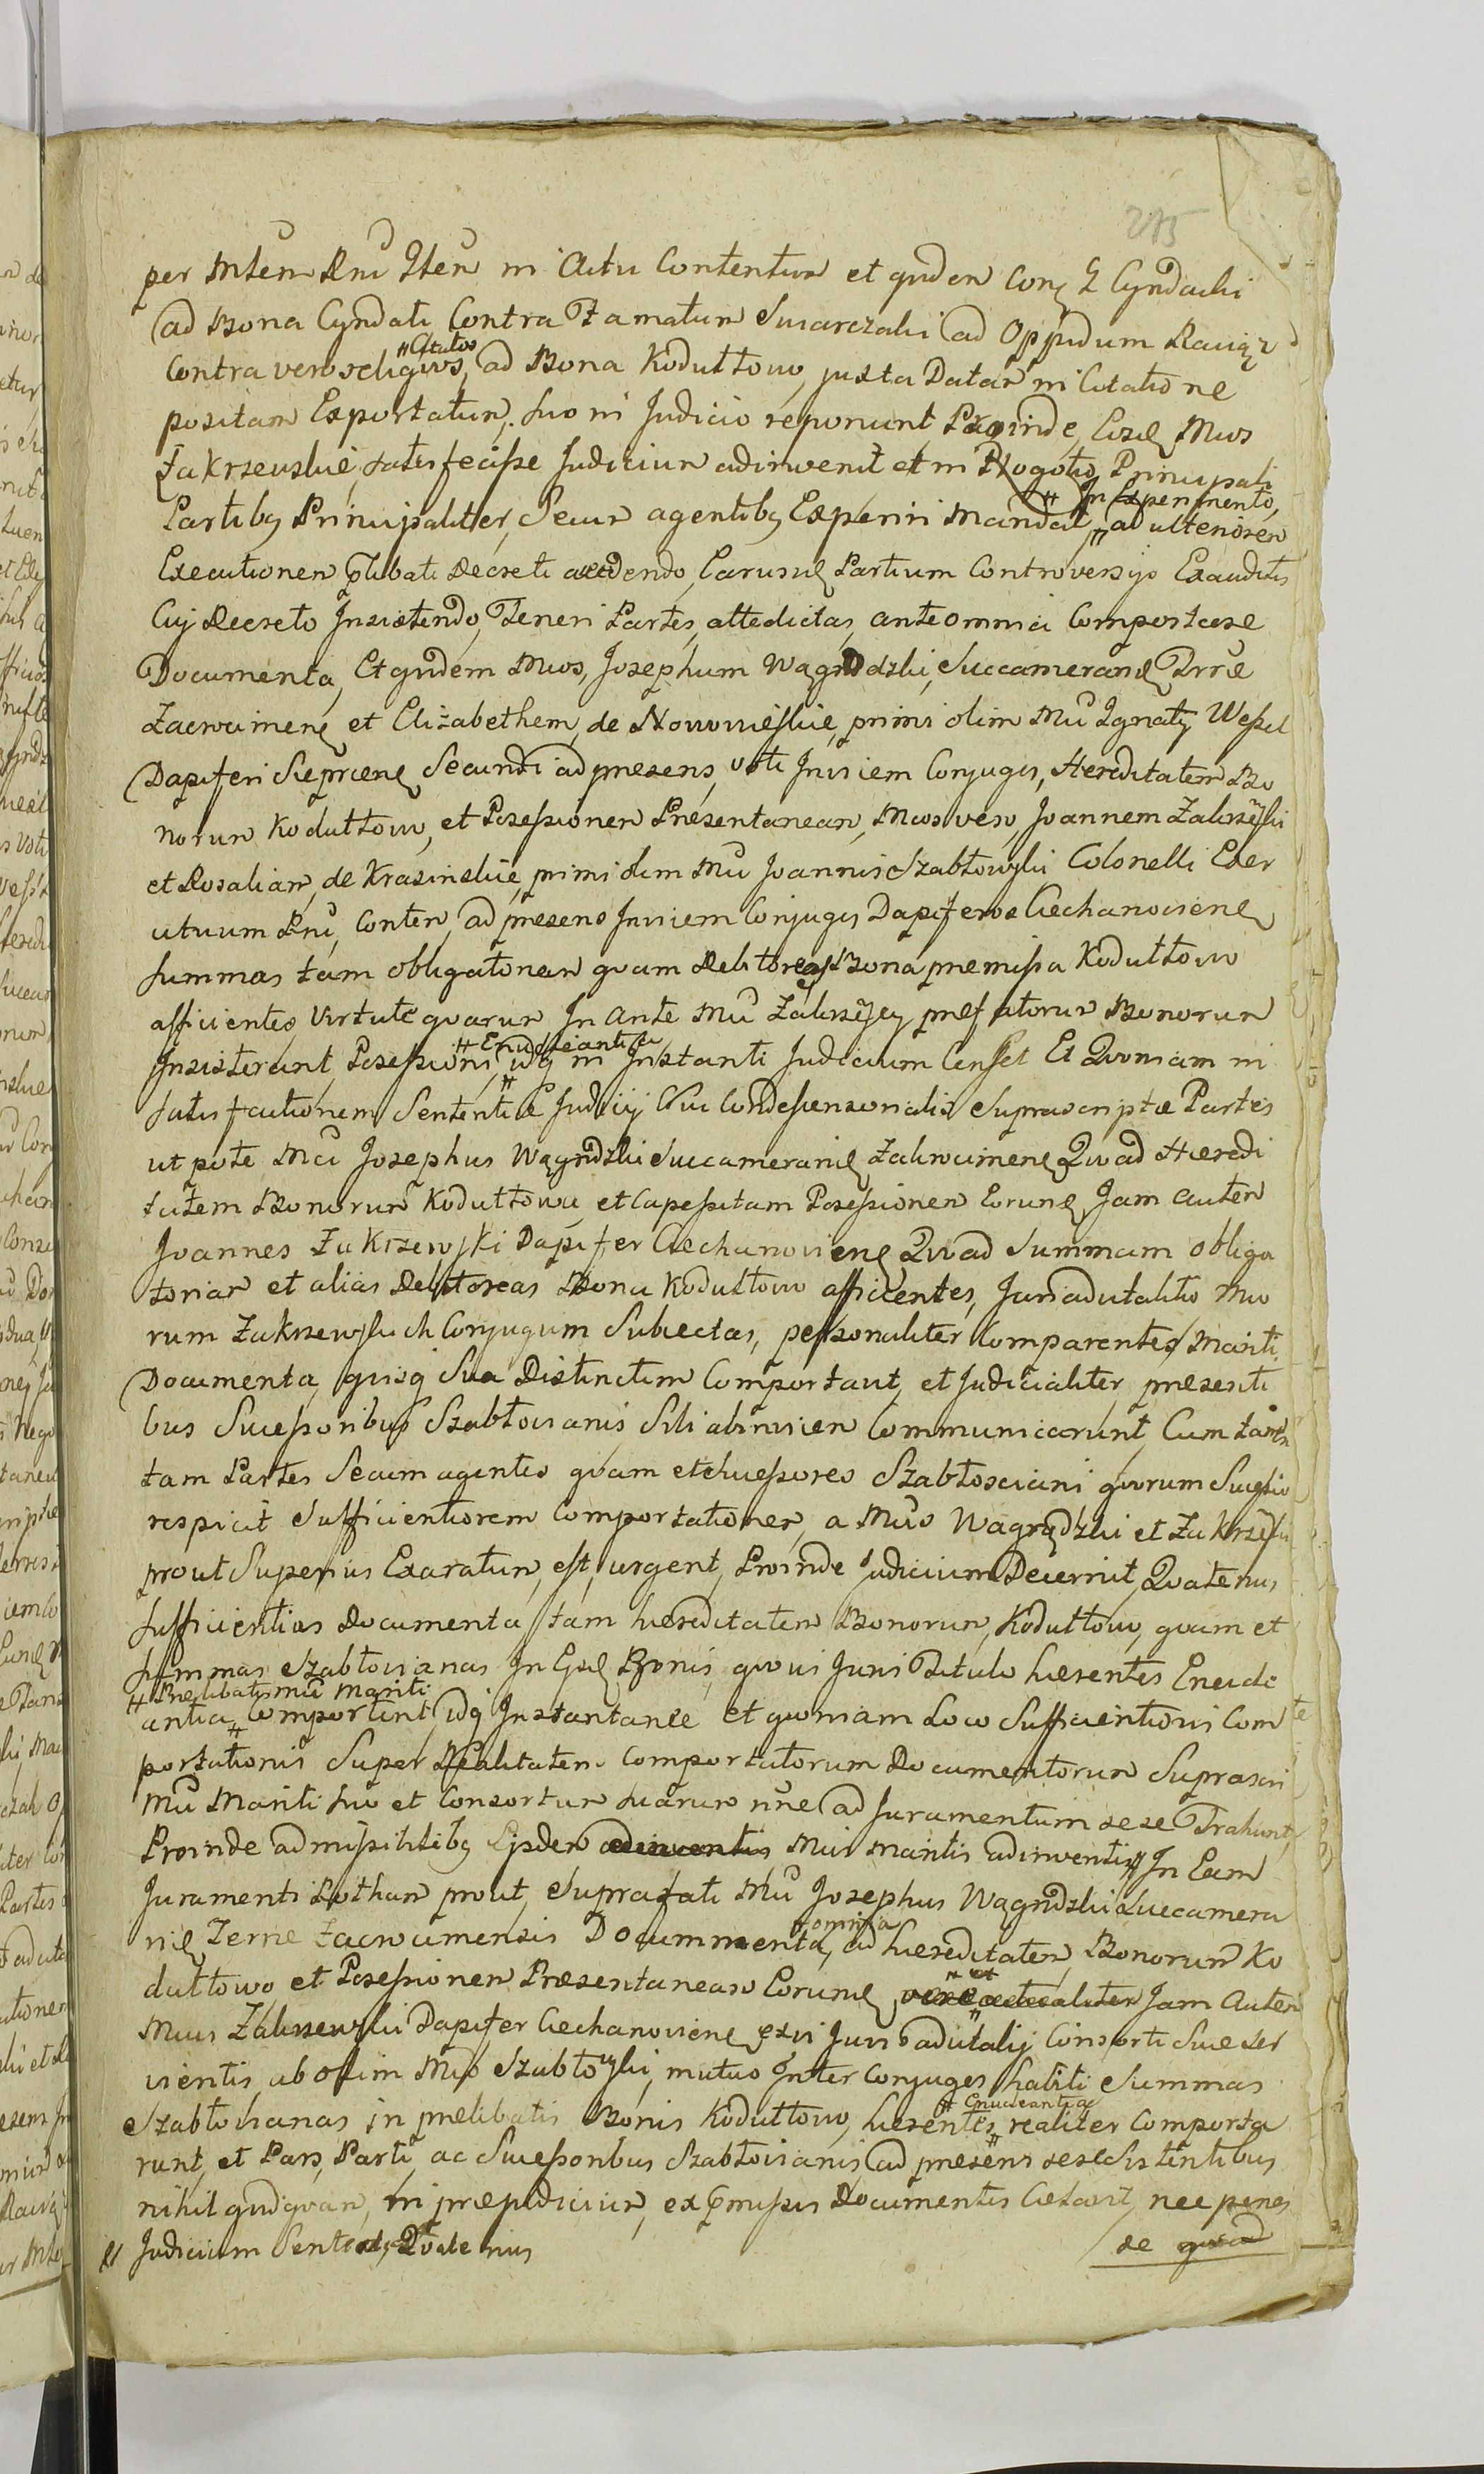 285
per Mtem Rni Iten in Actu Contentum et quidem Conq E Cyndacki
ad Bona Cyndati Contra Famatum Swarczaki ad Oppidum Raciąz
Contra vero religuos, "Citatos ad Bona Koduttowo, juxta Datam in Citatione
positam Exportatum, suo in Judicio reponunt, Proinde, Eosdę Mcos
Zakrzewskie, satisfecisse Judicium adinvenit et in Negotio, Principali
Partibq Principaliter, Secum agentibq Experiri mandat, # In Experimento, ad ulteriorem
Executionem plibati Decreti accedendo, Earumę Partium Controversijs Exauditis
Cuj Decreto Insistendo, Teneri Partes, attedictas, ante omnia Comportare
Documenta, Et quidem Mcos, Josephum Wągrodzki, Succameranę Trrae
Zacrocimenę et Elizabethem, de Nowowieskie, primi olim Mci Ignatij Wessel
Dapiferi Sieprcenę Secundi ad presens, voti Invicem Conjuges, Hereditatem Bo
norum Koduttowo, et Possessionem Presentaneam, Mcos vero, Joannem Zakrzewski
et Rosaliam, de Krasinskie, primi olim Mci Joannis Szabtowski Colonelli Exer
cituum Rni, Conten, ad presens Invicem Conjuges Dapiferos Ciechanovienę
summas tam obligatoriam quam debitoreas, Bona premissa Koduttowo
afficientes, virtute quarum In Ante Mci Zakrzewscy prefatorum Bonorum
Insisterant, Possessioni, # Enucleantia idq in Instanti Judicium Censet Et Quoniam in
satisfactionem Sententiae Judicij Sui Condescensorialis suprascriptae Partes
utpote Mci Josephus Wągrodzki Succameranię Zakrocimenę Quoad Heredi
tatem Bonorum Koduttowa, et Capessitam Possessionem Eorunę Jam autem
Joannes Zakrzewski Dapifer Ciechanovienę Quoad Summam obliga
toriam et alias debitoreas Bona Koduttowo afficientes, Juri advitalitio Mco
rum Zakrzewskich Conjugum Subjectas, personaliter Comparentes, Mariti
Documenta, quisq Sua Distinctim Comportant, et Judicialiter presenti
bus Successoribus Szabtovianis Sibi abinvicem Communicarunt, Cum tamen
tam Partes Secum agentes quam et Successores Szabtosciani quorum Successio
respicit Sufficientiorem Comportationem, a Mcis Wagrodzki et Zakrzewski
prout Superius Exaratum, est, urgent, Proinde Judicium Decernit, Quatenus
Sufficientias Documenta, tam hereditatem Bonorum, Koduttowo, quam et
summas Szabtovianas In Eisdę Bonis, quovis Juris Titulo herentes Enucle
antia, # Prelibatis Mci Mariti Comportent, idq Instantanee et quoniam Loco Sufficientioris Com
portationis Super Realitatem Comportatorum Documentorum Suprascri
Mci Mariti suo et Consortum suarum nne ad Juramentum sese Trahunt,
Proinde admissibilibq Eisdem adinventis Mcis maritis adinventis, In Eam
Juramenti Rotham prout, Suprafati Mci Josephus Wągrodzki Succamera
nię Terrae Zacrocimensis Documenta, omnia, ad hereditatem, Bonorum Ko
duttowo et Possessionem Presentaneam Eorunę, vere et actualiter Jam Autem
Mcus Zakrzewski Dapifer Ciechanovienę exvi Juris advitalij Consorti Suae ser
vientis, ab olim Mco Szabtowski, mutuo Inter Conjuges habiti Summas
Szabtovianas in prelibatis Bonis Koduttowo, herentes # Enucleantia realiter Comporta
runt, et Pars, Parti, ac Successoribus Szabtovianis, ad presens sese Sistentibus
nihil quidquam, in prejudicium, ex pmissis Documentis Celavit, nec penes
# Judicium Sentent, Quatenus
se quoad